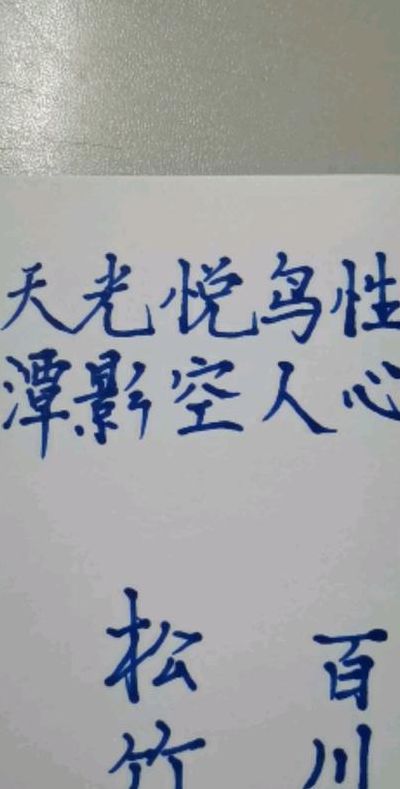 天光悦鸟性
潭影空人心
松 百
竹 川